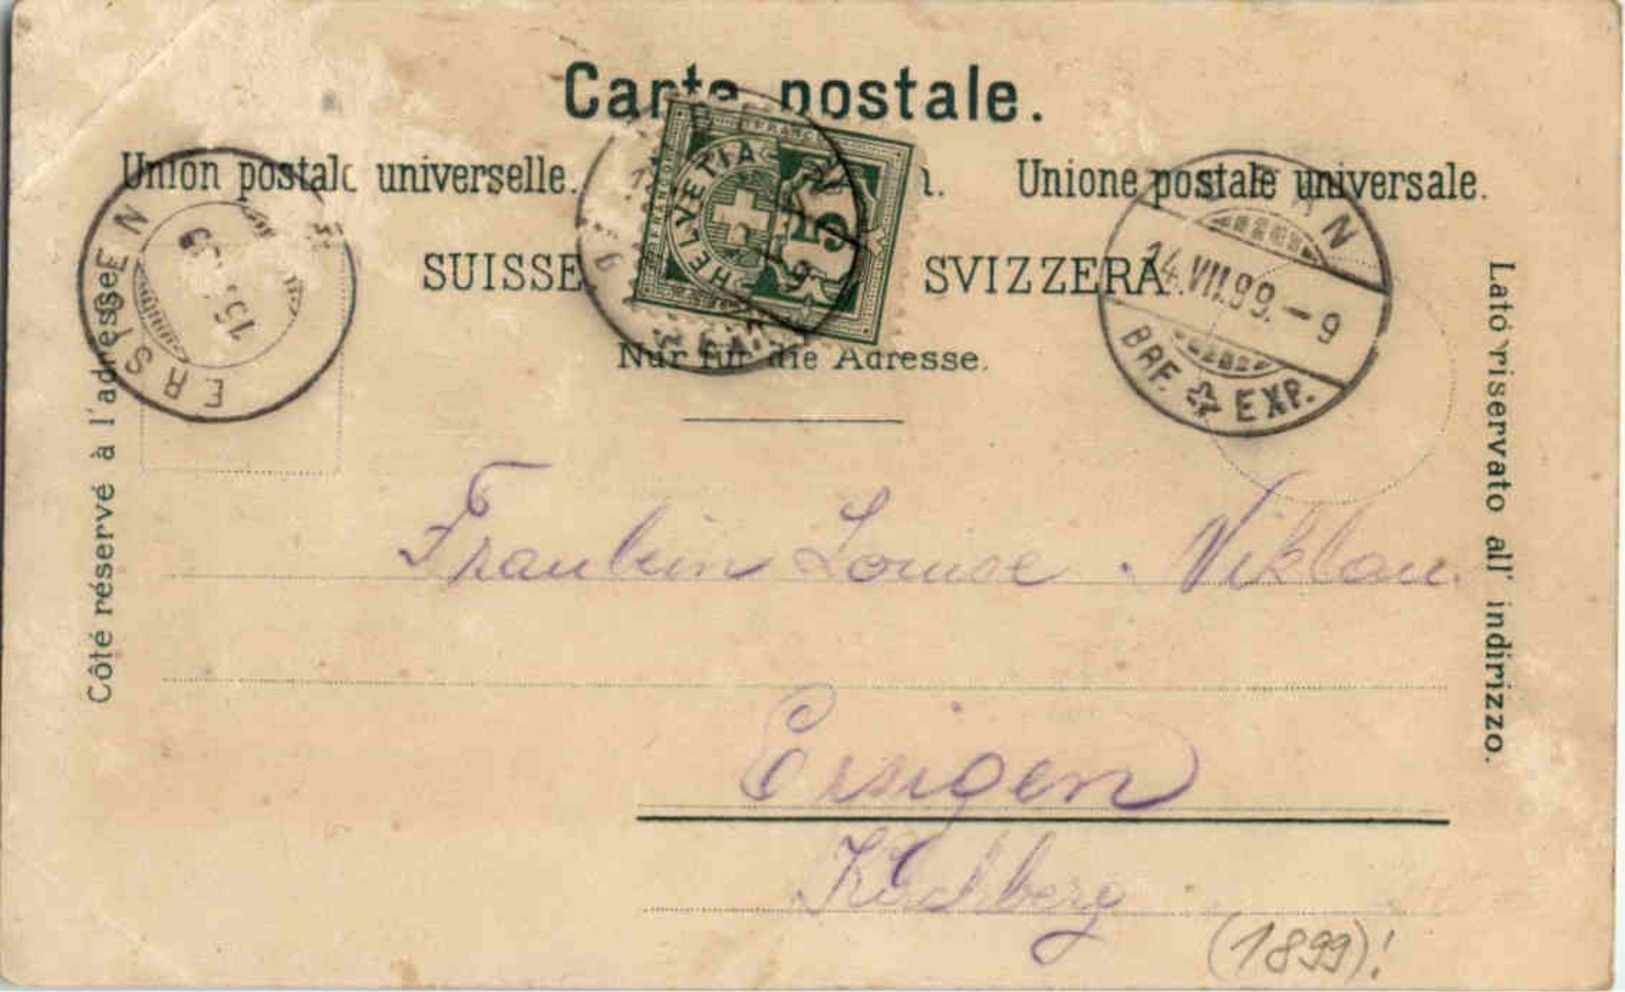 Carta postale.
Union postale universelle.
Unione postale universale.
SUISSE
SVIZZERA.
Nur für die Adresse.
Côté réservé à l'adresse
Lato riservato all' indirizzo.
HELVETIA
5
ERSIGEN
15
14.VII.99.-9
BRF. EXP.
Fraulein Louise Niklau.
Ersigen
Kirchberg
(1899)!